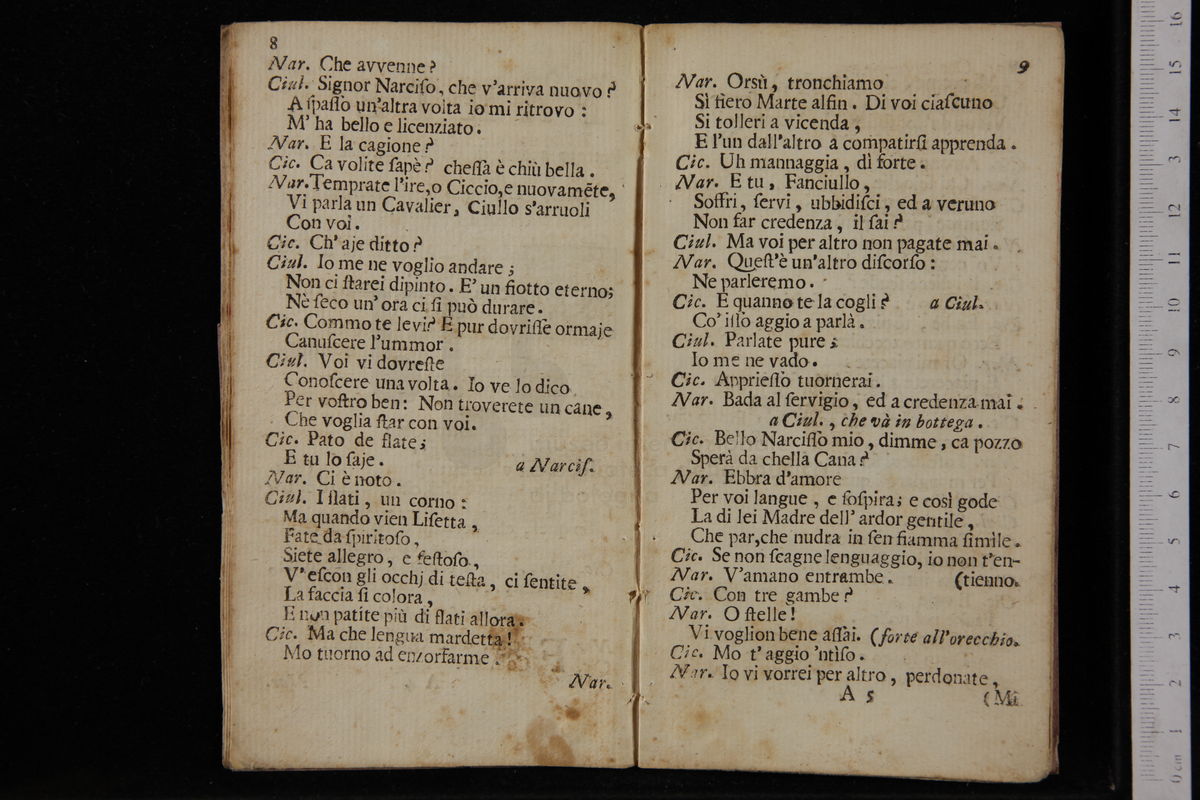 8
Nar. Che avvenne?
Ciul. Signor Narciſo, che v'arriva nuovo?
A ſpaſſo un'altra volta io mi ritrovo:
M' ha bello e licenziato.
Nar. E la cagione?
Cic. Ca volite ſapè? cheſſa è chiù bella.
Nar. Temprate l'ire, o Ciccio, e nuovamẽte,
Vi parla un Cavalier, Ciullo s'arruoli
Con voi.
Cic. Ch' aje ditto?
Ciul. Io me ne voglio andare;
Non ci ſtarei dipinto. E' un fiotto eterno;
Nè ſeco un' ora ci ſi può durare.
Cic. Commo te levi? E pur dovriſſe ormaje
Canuſcere l'ummor.
Ciul. Voi vi dovreſte
Conoſcere una volta. Io ve lo dico
Per voſtro ben: Non troverete un cane,
Che voglia ſtar con voi.
Cic. Pato de flate;
E tu lo ſaje. a Narciſ.
Nar. Ci è noto.
Ciul. I flati, un corno:
Ma quando vien Liſetta,
Fate da ſpiritoſo,
Siete allegro, e feſtoſo,
V' eſcon gli occhj di teſta, ci ſentite,
La faccia ſi colora,
E non patite più di flati allora.
Cic. Ma che lengua mardetta!
Mo tuorno ad enzorfarme.
Nar.
9
Nar. Orsù, tronchiamo
Sì fiero Marte alfin. Di voi ciaſcuno
Si tolleri a vicenda,
E l'un dall'altro a compatirſi apprenda.
Cic. Uh mannaggia, dì forte.
Nar. E tu, Fanciullo,
Soffri, ſervi, ubbidiſci, ed a veruno
Non far credenza, il ſai?
Ciul. Ma voi per altro non pagate mai.
Nar. Queſt'è un'altro diſcorſo:
Ne parleremo.
Cic. E quanno te la cogli? a Ciul.
Co' iſſo aggio a parlà.
Ciul. Parlate pure;
Io me ne vado.
Cic. Apprieſſo tuornerai.
Nar. Bada al ſervigio, ed a credenza mai.
a Ciul., che và in bottega.
Cic. Bello Narciſſo mio, dimme, ca pozzo
Sperà da chella Cana?
Nar. Ebbra d'amore
Per voi langue, e ſoſpira; e così gode
La di lei Madre dell' ardor gentile,
Che par, che nudra in ſen fiamma ſimile.
Cic. Se non ſcagne lenguaggio, io non t'en-
Nar. V'amano entrambe. (tienno.
Cic. Con tre gambe?
Nar. O ſtelle!
Vi voglion bene aſſai. (forte all'orecchio.
Cic. Mo t' aggio 'ntiſo.
Nar. Io vi vorrei per altro, perdonate,
A 5 (Mi